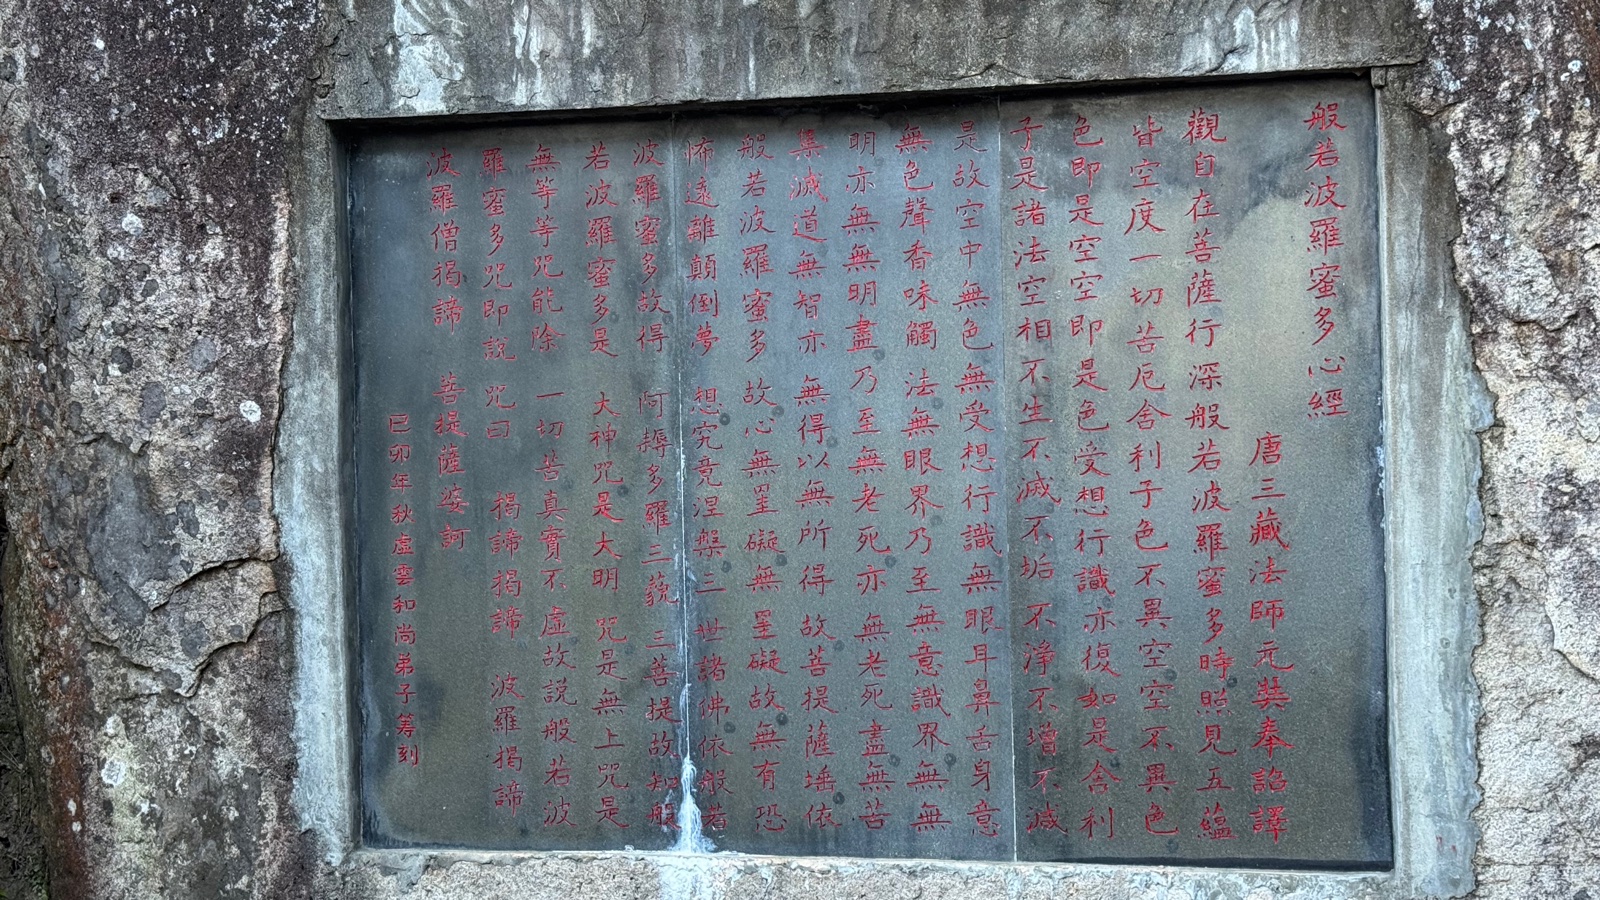 般若波羅蜜多心經
唐三藏法師元奘奉詔譯
觀自在菩薩行深般若波羅蜜多時照見五蘊
皆空度一切苦厄舍利子色不異空空不異色
色即是空空即是色受想行識亦復如是舍利
子是諸法空相不生不滅不垢不淨不增不減
是故空中無色無受想行識無眼耳鼻舌身意
無色聲香味觸法無眼界乃至無意識界無無
明亦無無明盡乃至無老死亦無老死盡無苦
集滅道無智亦無得以無所得故菩提薩埵依
般若波羅蜜多故心無罣礙無罣礙故無有恐
怖遠離顛倒夢想究竟涅槃三世諸佛依般若
波羅蜜多故得阿耨多羅三藐三菩提故知般
若波羅蜜多是大神咒是大明咒是無上咒是
無等等咒能除一切苦真實不虛故説般若波
羅蜜多咒即説咒曰揭諦揭諦波羅揭諦
波羅僧揭諦菩提薩婆訶
己卯年秋虛雲和尚弟子籌刻